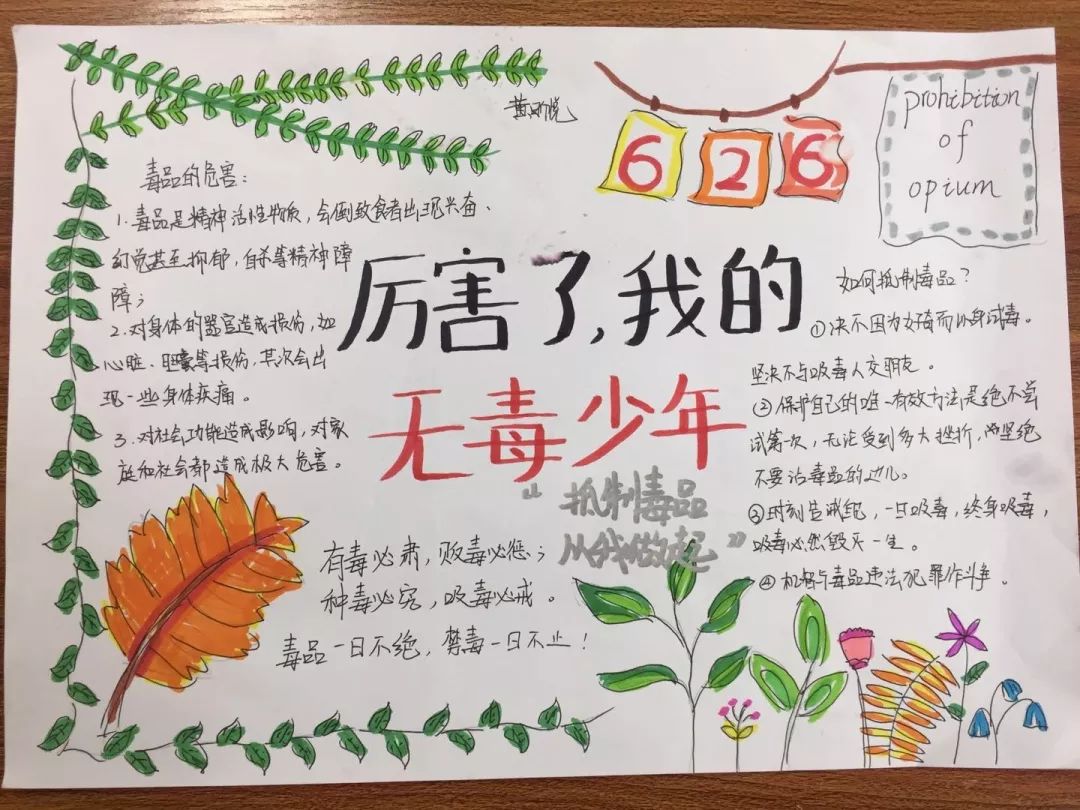 626
prohibition
of
opium
毒品的危害:
1.毒品是精神活性物质,会倒致食者出现兴奋、
幻觉甚至抑郁,自杀等精神障
障;
2.对身体的器官造成损伤,如
心脏、等损伤,其次会出
现一些身体疾痛。
3.对社会功能造成影响,对家
庭和社会都造成极大危害。
厉害了,我的
无毒少年
“抵制毒品
从我做起”
有毒必肃,贩毒必惩;
种毒必究,吸毒必戒。
毒品一日不绝,禁毒一日不止!
如何抵制毒品?
①决不因为好奇而以身试毒。
坚决不与吸毒人交朋友。
②保护自己的唯一有效方法是绝不尝
试第一次,无论受到多大挫折,坚绝
不要沾毒品的边儿。
③时刻告戒自己,一旦吸毒,终身吸毒,
吸毒必然毁灭一生。
④机智与毒品违法犯罪作斗争。